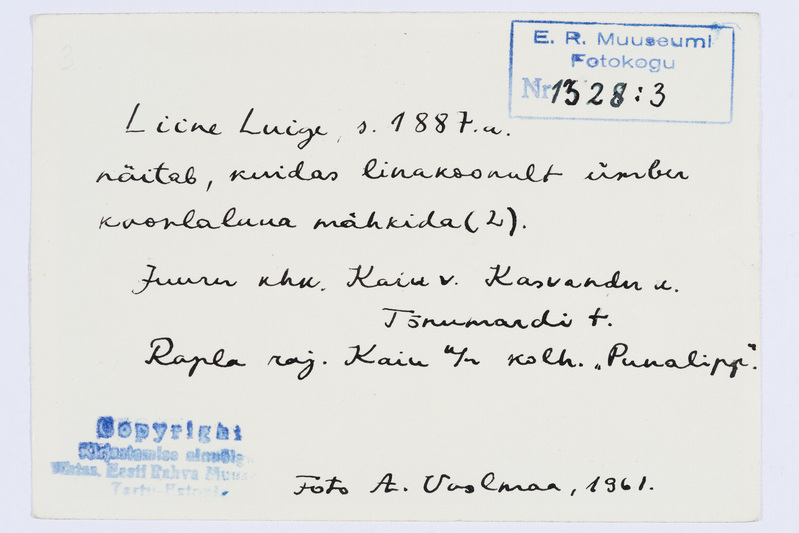 E. R. Muuseumi
Fotokogu
Nr 1328:3
Liine Luige, s. 1887.a.
näitab, kuidas linakoonult ümber
koonlalaua mähkida (2).
Juuru khk. Kaiu v. Kasvandu k.
Tõnumardi t.
Rapla raj. Kaiu k/n kolh. „Punalipp".
Copyright
Kirjastamise ainuõig
Eesti Rahva
Foto A. Voolmaa, 1961.